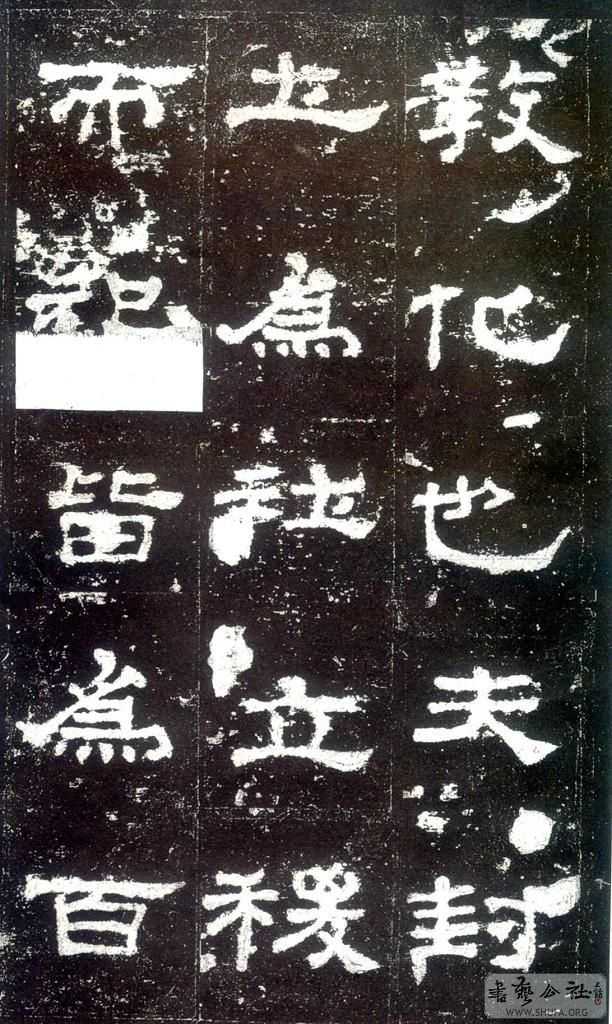 教化也夫封
土為社立稷
而祀皆為百
書藝公社
WWW.SHUFA.ORG